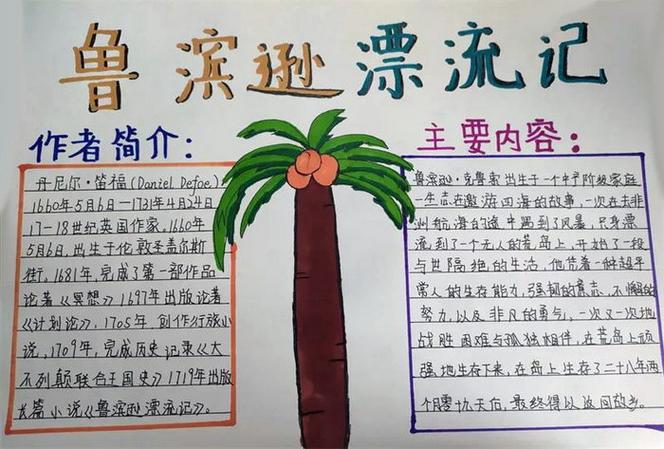 鲁滨逊漂流记
作者简介：
丹尼尔·笛福(Daniel Defoe.)
1660年5月6日—1731年4月24日
17-18世纪英国作家。1660年
5月6日，出生于伦敦圣盖尔斯
街。1681年，完成了第一部作品
论著《冥想》1697年出版论著
《计划论》，1705年，创作行旅小
说，1709年，完成历史记录《大
不列颠联合王国史》1719年出版
长篇小说《鲁滨逊漂流记》。
主要内容：
鲁滨逊·克鲁索出生于一个中产阶级家庭
一生志在遨游四海的故事，一次在去非
洲航海的途中遇到了风暴，只身漂
流到了一个无人的荒岛上，开始了一段
与世隔绝的生活，他凭着一种超乎
常人的生存能力，强韧的意志，不懈的
努力，以及非凡的勇气，一次又一次地
战胜困难与孤独相伴，在荒岛上顽
强地生存下来，在岛上生存了二十八年两
个月零十九天后，最终得以返回故乡。